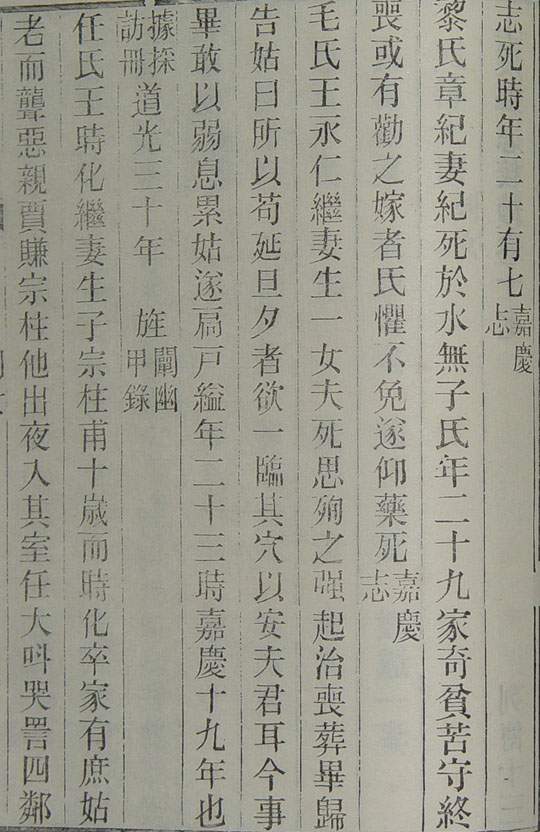 志死時年二十有七嘉慶志
黎氏章紀妻紀死於水無子氏年二十九家奇貧苦守終
喪或有勸之嫁者氏懼不免遂仰藥死嘉慶志
毛氏王永仁繼妻生一女夫死思殉之强起治喪葬畢歸
告姑曰所以苟延旦夕者欲一臨其穴以安夫君耳今事
畢敢以弱息累姑遂扃戸縊年二十三時嘉慶十九年也
據採訪冊道光三十年 旌闡幽甲錄
任氏王時化繼妻生子宗柱甫十歲而時化卒家有庶姑
老而聾惡親賈賺宗柱他出夜入其室任大呌哭詈四鄰